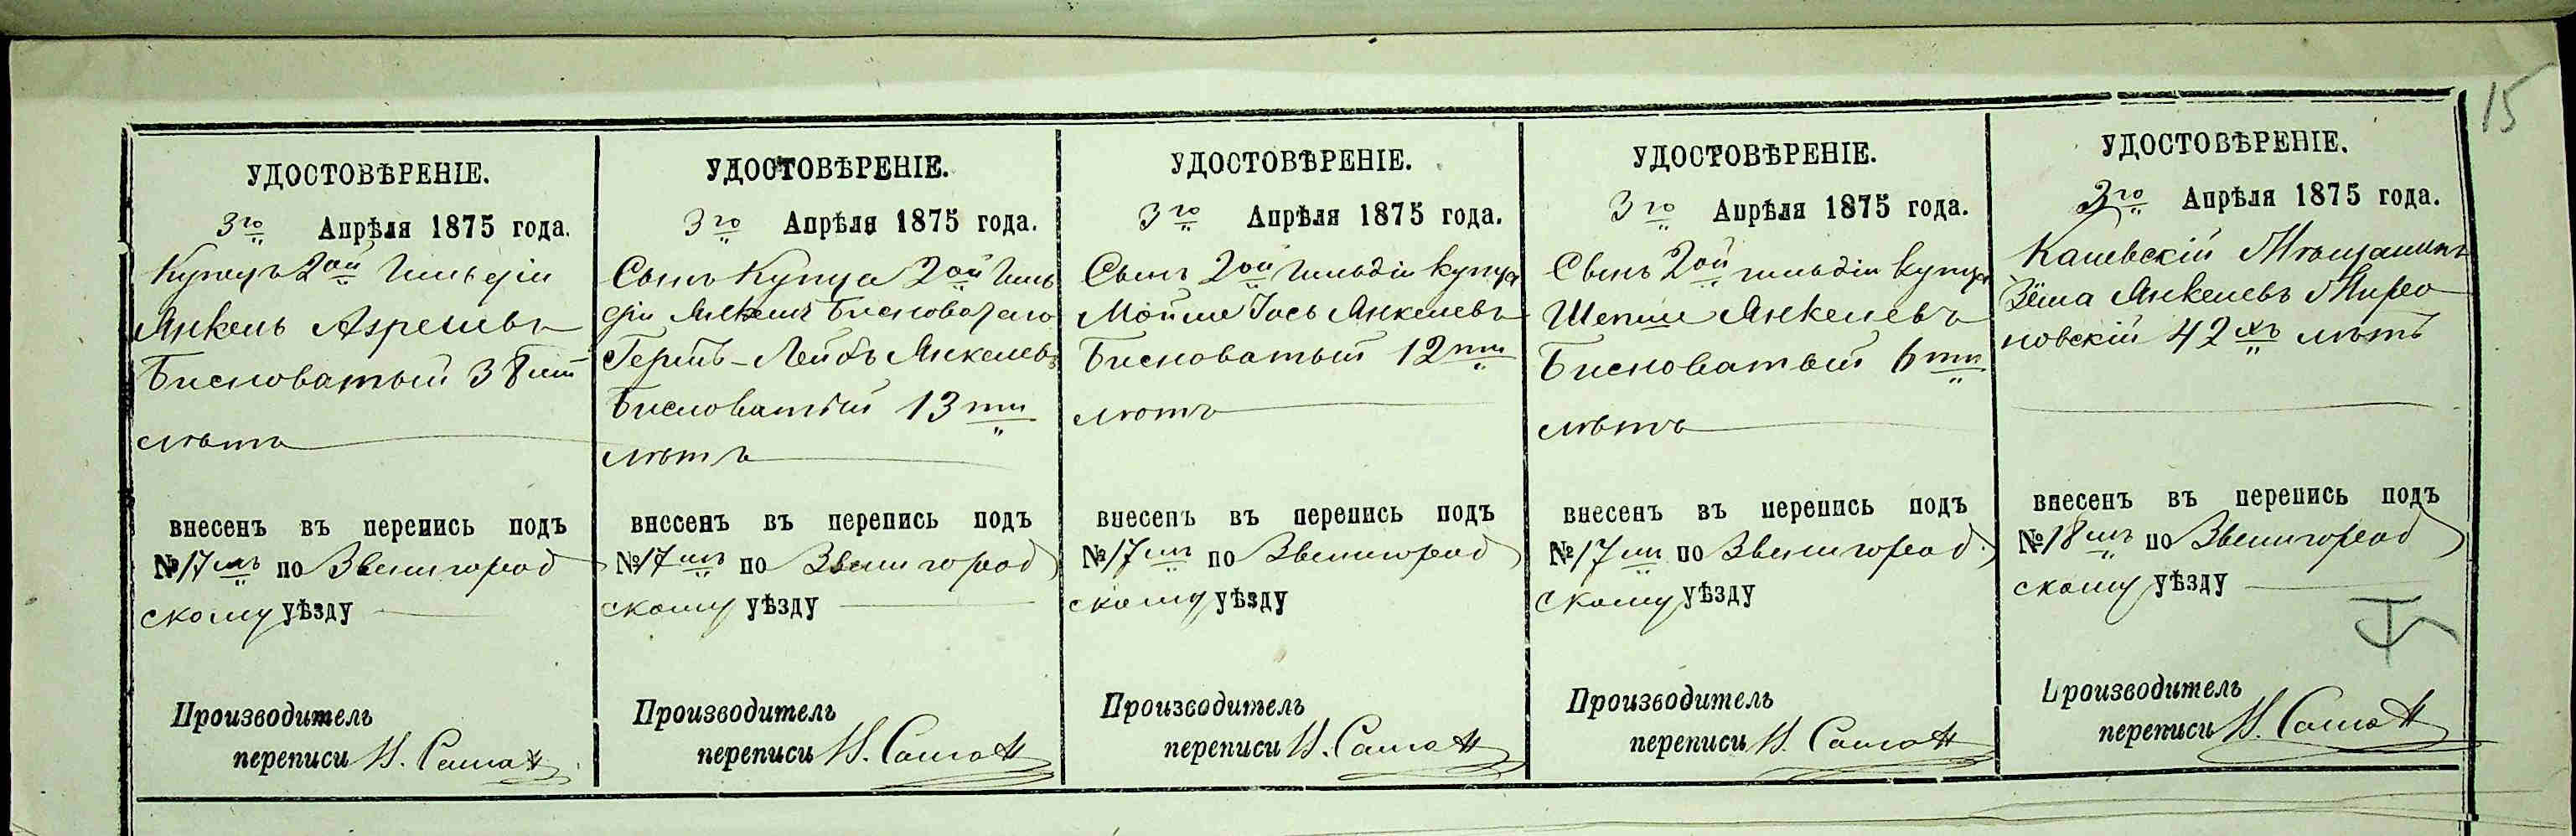 15
УДОСТОВѢРЕНІЕ.
3го Апрѣля 1875 года.
Купецъ 2ой Гильдіи
Янкель Азрелевъ
Бисноватый 38ми
лѣтъ
внесенъ въ перепись подъ
№17мъ по Звенигород
скому уѣзду
Производитель
переписи И.
УДОСТОВѢРЕНІЕ.
3го Апрѣля 1875 года.
Сынъ Купца 2ой Гиль
діи Янкеля Бисноватаго
Гершъ-Лейбъ Янкелевъ
Бисноватый 13ти
лѣтъ
внесенъ въ перепись подъ
№17мъ по Звенигород
скому уѣзду
Производитель
переписи И.
УДОСТОВѢРЕНІЕ.
3го Апрѣля 1875 года.
Сынъ 2ой гильдіи купца
Мойше Іось Янкелевъ
Бисноватый 12ти
лѣтъ
внесенъ въ перепись подъ
№17мъ по Звенигород
скому уѣзду
Производитель
переписи И.
УДОСТОВѢРЕНІЕ.
3го Апрѣля 1875 года.
Сынъ 2ой гильдіи купца
Шепше Янкелевъ
Бисноватый 6ти
лѣтъ
внесенъ въ перепись подъ
№17мъ по Звенигород
скому уѣзду
Производитель
переписи И.
УДОСТОВѢРЕНІЕ.
3го Апрѣля 1875 года.
Каневскій Мѣщанинъ
Зёма Янкелевъ Миро
новскій 42хъ лѣтъ
внесенъ въ перепись подъ
№18мъ по Звенигород
скому уѣзду
Производитель
переписи И.